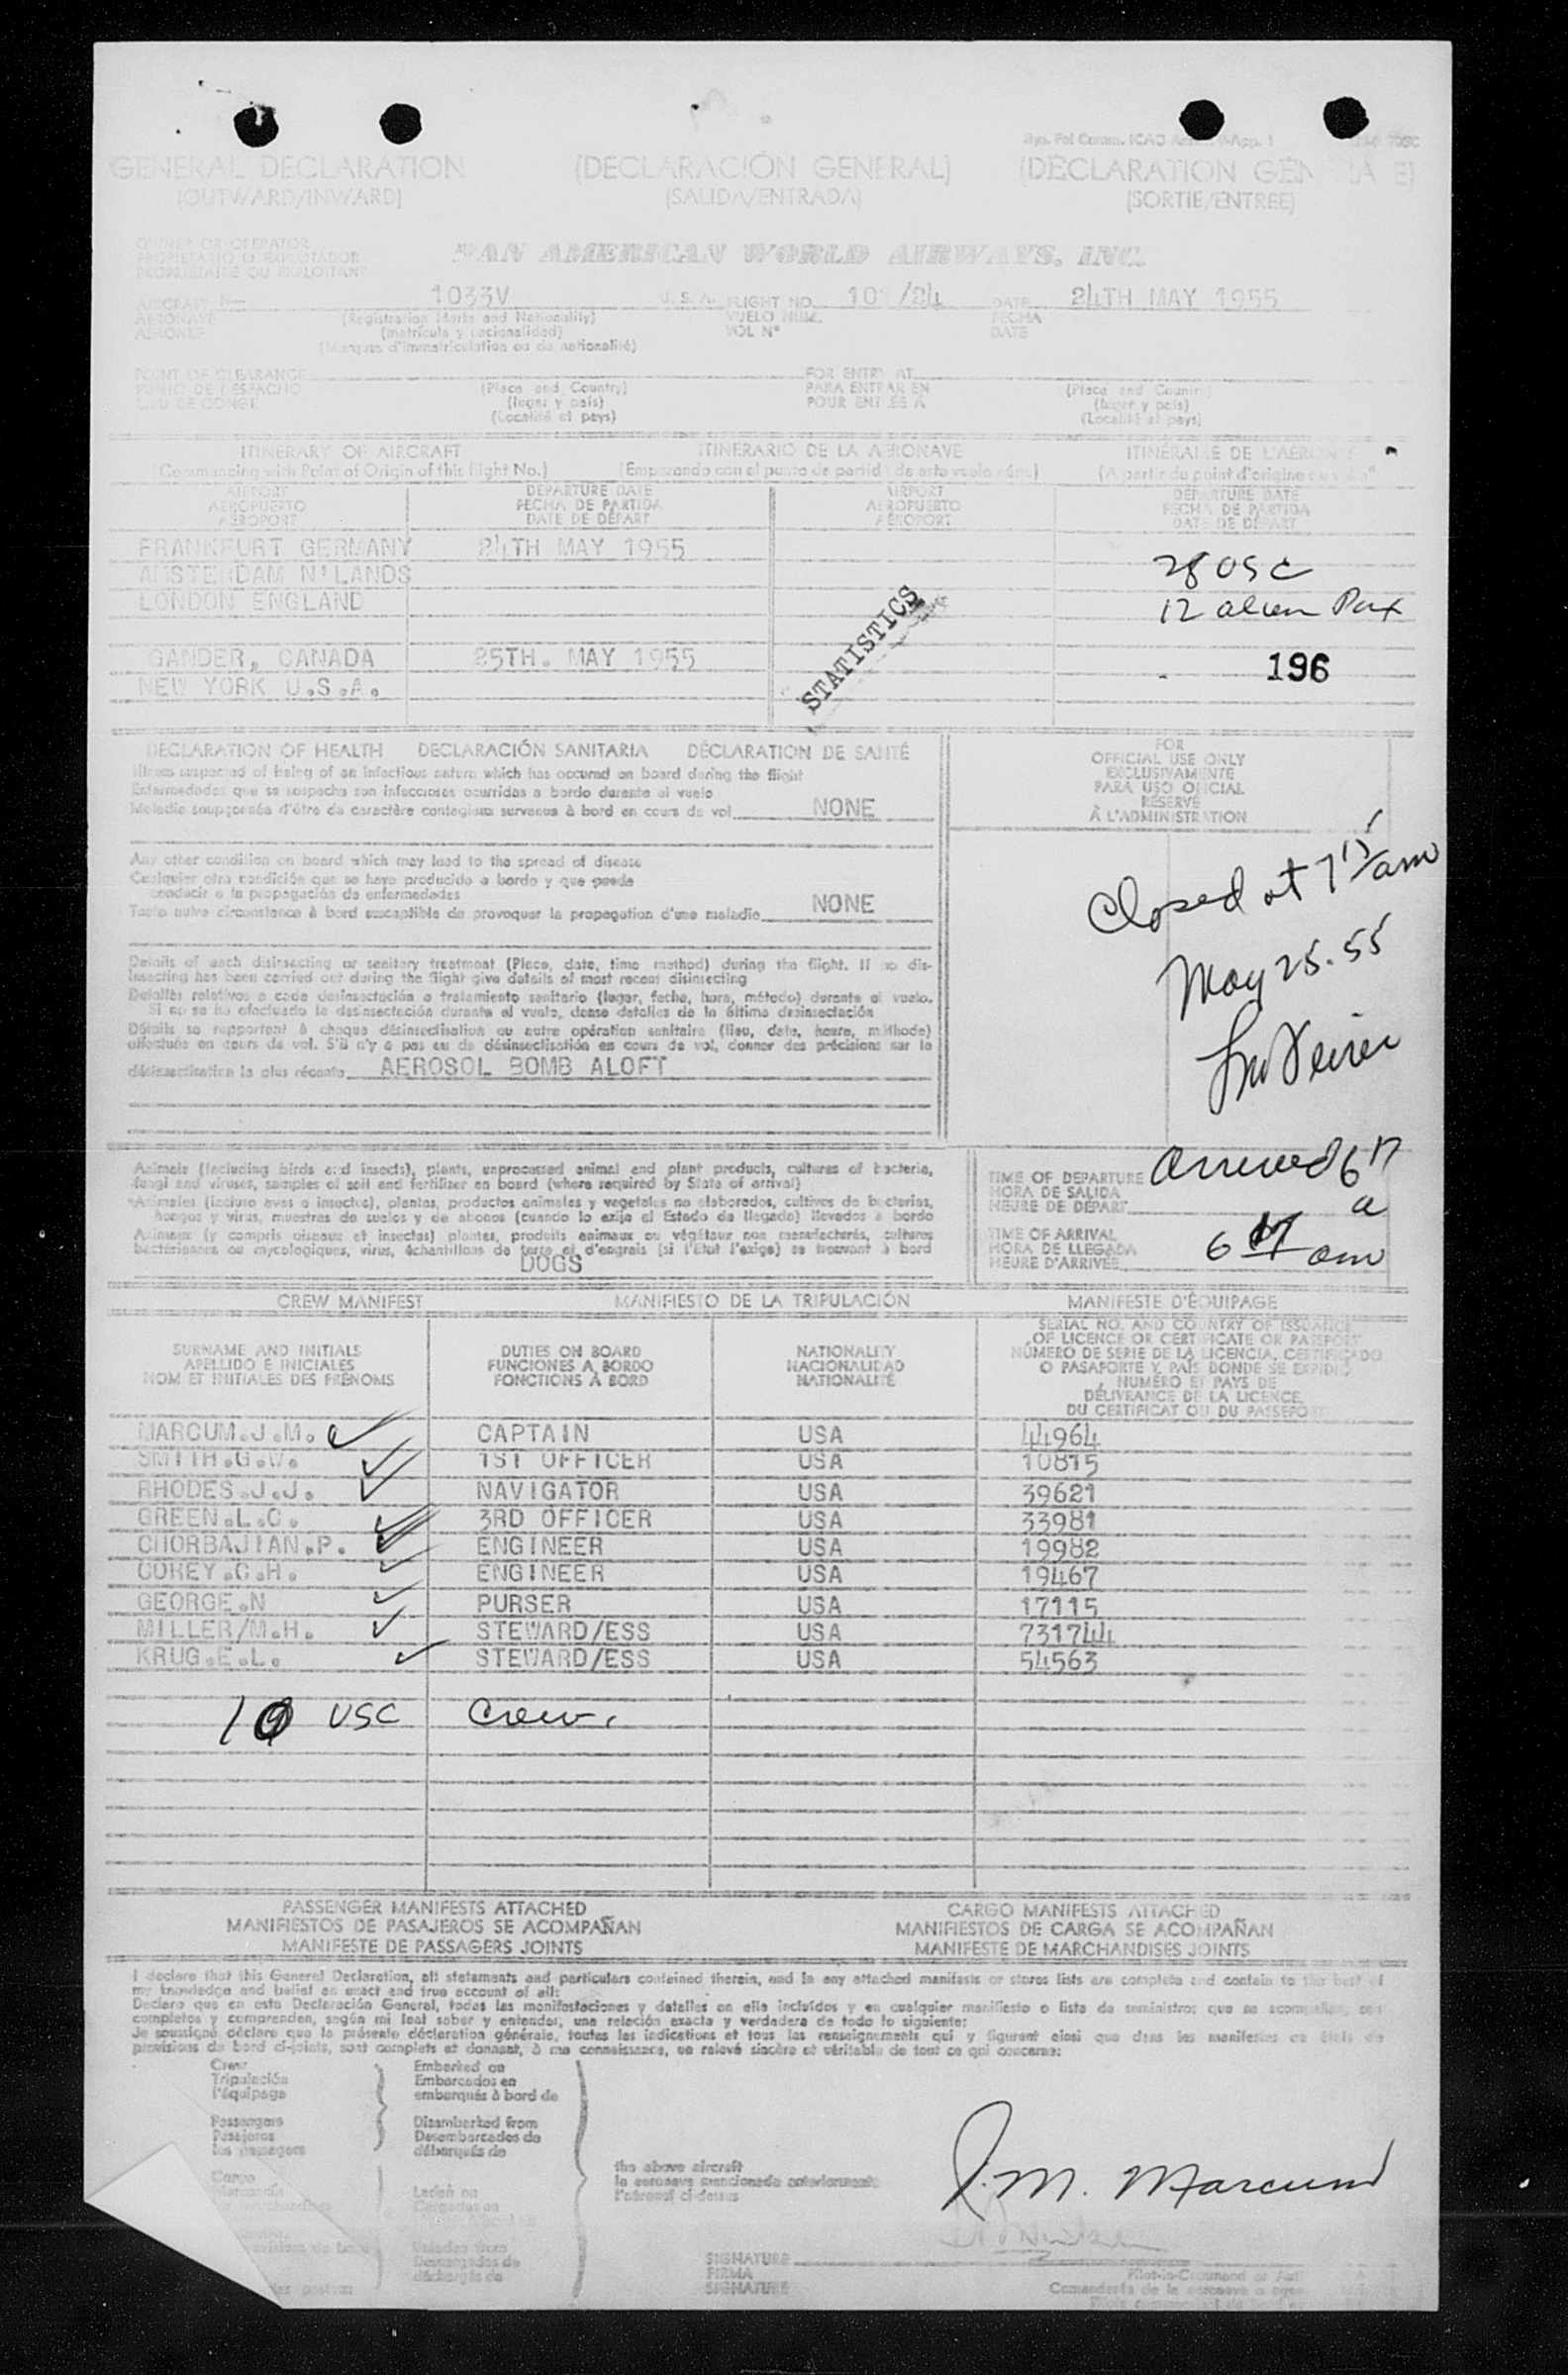 GENERAL DECLARATION (DECLARACIÓN GENERAL)
(OUTWARD/INWARD) (SALIDA/ENTRADA) (SORTIE/ENTREE)
OWNER OR OPERATOR
PROPIETARIO O EXPLOTADOR PAN AMERICAN WORLD AIRWAYS, INC.
PROPRIETAIRE OU EXPLOITANT
AIRCRAFT N— 1033V U.S.A. FLIGHT NO. 101/24 DATE 24TH MAY 1955
AERONAVE (Registration Marks and Nationality) VUELO NUM. FECHA
AERONEF (matricula y nacionalidad) VOL Nº DATE
(Marques d'immatriculation ou de nationalité)
POINT OF CLEARANCE FOR ENTRY AT
PUNTO DE DESPACHO (Place and Country) PARA ENTRAR EN (Place and Country)
LIEU DE CONGE (lugar y país) POUR ENTRÉE A (lugar y país)
(Localité et pays) (Localité et pays)
ITINERARY OF AIRCRAFT ITINERARIO DE LA AERONAVE
(Commencing with Point of Origin of this flight No.)
AIRPORT DEPARTURE DATE AIRPORT DEPARTURE DATE
AEROPUERTO FECHA DE PARTIDA AEROPUERTO FECHA DE PARTIDA
AÉROPORT DATE DE DÉPART AÉROPORT DATE DE DÉPART
FRANKFURT GERMANY 24TH MAY 1955
AMSTERDAM N'LANDS
LONDON ENGLAND
28 USC
12 alien Pax
STATISTICS
GANDER, CANADA 25TH. MAY 1955 196
NEW YORK U.S.A.
DECLARATION OF HEALTH DECLARACIÓN SANITARIA DÉCLARATION DE SANTÉ
Illness suspected of being of an infectious nature which has occured on board during the flight
Enfermedades que se sospecha son infecciosas ocurridas a bordo durante el vuelo
Maladie soupçonnée d'être de caractère contagieux survenue à bord en cours de vol NONE
Any other condition on board which may lead to the spread of disease
Cualquier otra condición que se haya producido a bordo y que puede
conducir a la propagación de enfermedades
Toute autre circonstance à bord susceptible de provoquer la propagation d'une maladie NONE
Details of each disinsecting or sanitary treatment (Place, date, time method) during the flight. If no dis-
insecting has been carried out during the flight give details of most recent disinsecting
Detalles relativos a cada desinsectación o tratamiento sanitario (lugar, fecha, hora, método) durante el vuelo.
Si no se ha efectuado la desinsectación durante el vuelo, dense detalles de la última desinsectación
Détails se rapportant à chaque désinsectisation ou autre opération sanitaire (lieu, date, heure, méthode)
effectuée en cours de vol. S'il n'y a pas eu de désinsectisation en cours de vol, donner des précisions sur la
désinsectisation la plus récente AEROSOL BOMB ALOFT
FOR
OFFICIAL USE ONLY
EXCLUSIVAMENTE
PARA USO OFICIAL
RÉSERVÉ
À L'ADMINISTRATION
Closed at 7 15 am
May 25.55
Animals (including birds and insects), plants, unprocessed animal and plant products, cultures of bacteria,
fungi and viruses, samples of soil and fertilizer on board (where required by State of arrival)
Animales (incluso aves o insectos), plantas, productos animales y vegetales no elaborados, cultivos de bacterias,
hongos y virus, muestras de suelos y de abonos (cuando lo exija el Estado de llegada) llevados a bordo
Animaux (y compris oiseaux et insectes) plantes, produits animaux ou végétaux non manufacturés, cultures
bactériennes ou mycologiques, virus, échantillons de terre et d'engrais (si l'État l'exige) se trouvant à bord
DOGS
TIME OF DEPARTURE Arrived 6 17
HORA DE SALIDA
HEURE DE DÉPART a
TIME OF ARRIVAL
HORA DE LLEGADA 6 17 am
HEURE D'ARRIVÉE
CREW MANIFEST MANIFIESTO DE LA TRIPULACIÓN MANIFESTE D'ÉQUIPAGE
SURNAME AND INITIALS DUTIES ON BOARD NATIONALITY SERIAL NO. AND COUNTRY OF ISSUANCE
APELLIDO E INICIALES FUNCIONES A BORDO NACIONALIDAD OF LICENCE OR CERTIFICATE OR PASSPORT
NOM ET INITIALES DES PRÉNOMS FONCTIONS À BORD NATIONALITÉ NÚMERO DE SERIE DE LA LICENCIA, CERTIFICADO
O PASAPORTE Y PAÍS DONDE SE EXPIDIÓ
NUMÉRO ET PAYS DE
DÉLIVRANCE DE LA LICENCE,
DU CERTIFICAT OU DU PASSEPORT
MARCUM.J.M. CAPTAIN USA 44964
SMITH.G.W. 1ST OFFICER USA 10815
RHODES.J.J. NAVIGATOR USA 39621
GREEN.L.C. 3RD OFFICER USA 33981
CHORBAJIAN.P. ENGINEER USA 19982
COREY.C.H. ENGINEER USA 19467
GEORGE.N PURSER USA 17115
MILLER/M.H. STEWARD/ESS USA 731744
KRUG.E.L. STEWARD/ESS USA 54563
USC Crew.
PASSENGER MANIFESTS ATTACHED CARGO MANIFESTS ATTACHED
MANIFIESTOS DE PASAJEROS SE ACOMPAÑAN MANIFIESTOS DE CARGA SE ACOMPAÑAN
MANIFESTE DE PASSAGERS JOINTS MANIFESTE DE MARCHANDISES JOINTS
I declare that this General Declaration, all statements and particulars contained therein, and in any attached manifests or stores lists are complete and contain to the best of
my knowledge and belief an exact and true account of all:
Declaro que en esta Declaración General, todas las manifestaciones y detalles en ella incluídos y en cualquier manifiesto o lista de suministros que se acompañan, son
completos y comprenden, según mi leal saber y entender, una relación exacta y verdadera de todo lo siguiente:
Je soussigné déclare que la présente déclaration générale, toutes les indications et tous les renseignements qui y figurent ainsi que dans les manifestes ou états de
provisions de bord ci-joints, sont complets et donnent, à ma connaissance, un relevé sincère et véritable de tout ce qui concerne:
Crew Embarked on
Tripulación Embarcados en
l'équipage embarqués à bord de
Passengers Disembarked from
Pasajeros Desembarcados de
les passagers débarqués de
the above aircraft
la aeronave mencionada anteriormente
l'aéronef ci-dessus
Cargo
J. M. Marcum
SIGNATURE
FIRMA
SIGNATURE